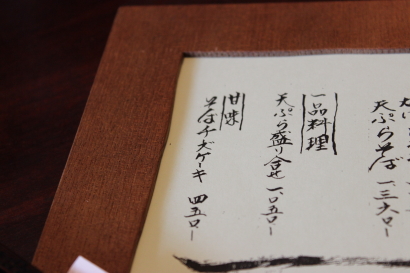 天ぷらそば 一、三六〇ー
一品料理
天ぷら盛り合せ 一、〇五〇ー
甘味
そばチーズケーキ 四五〇ー